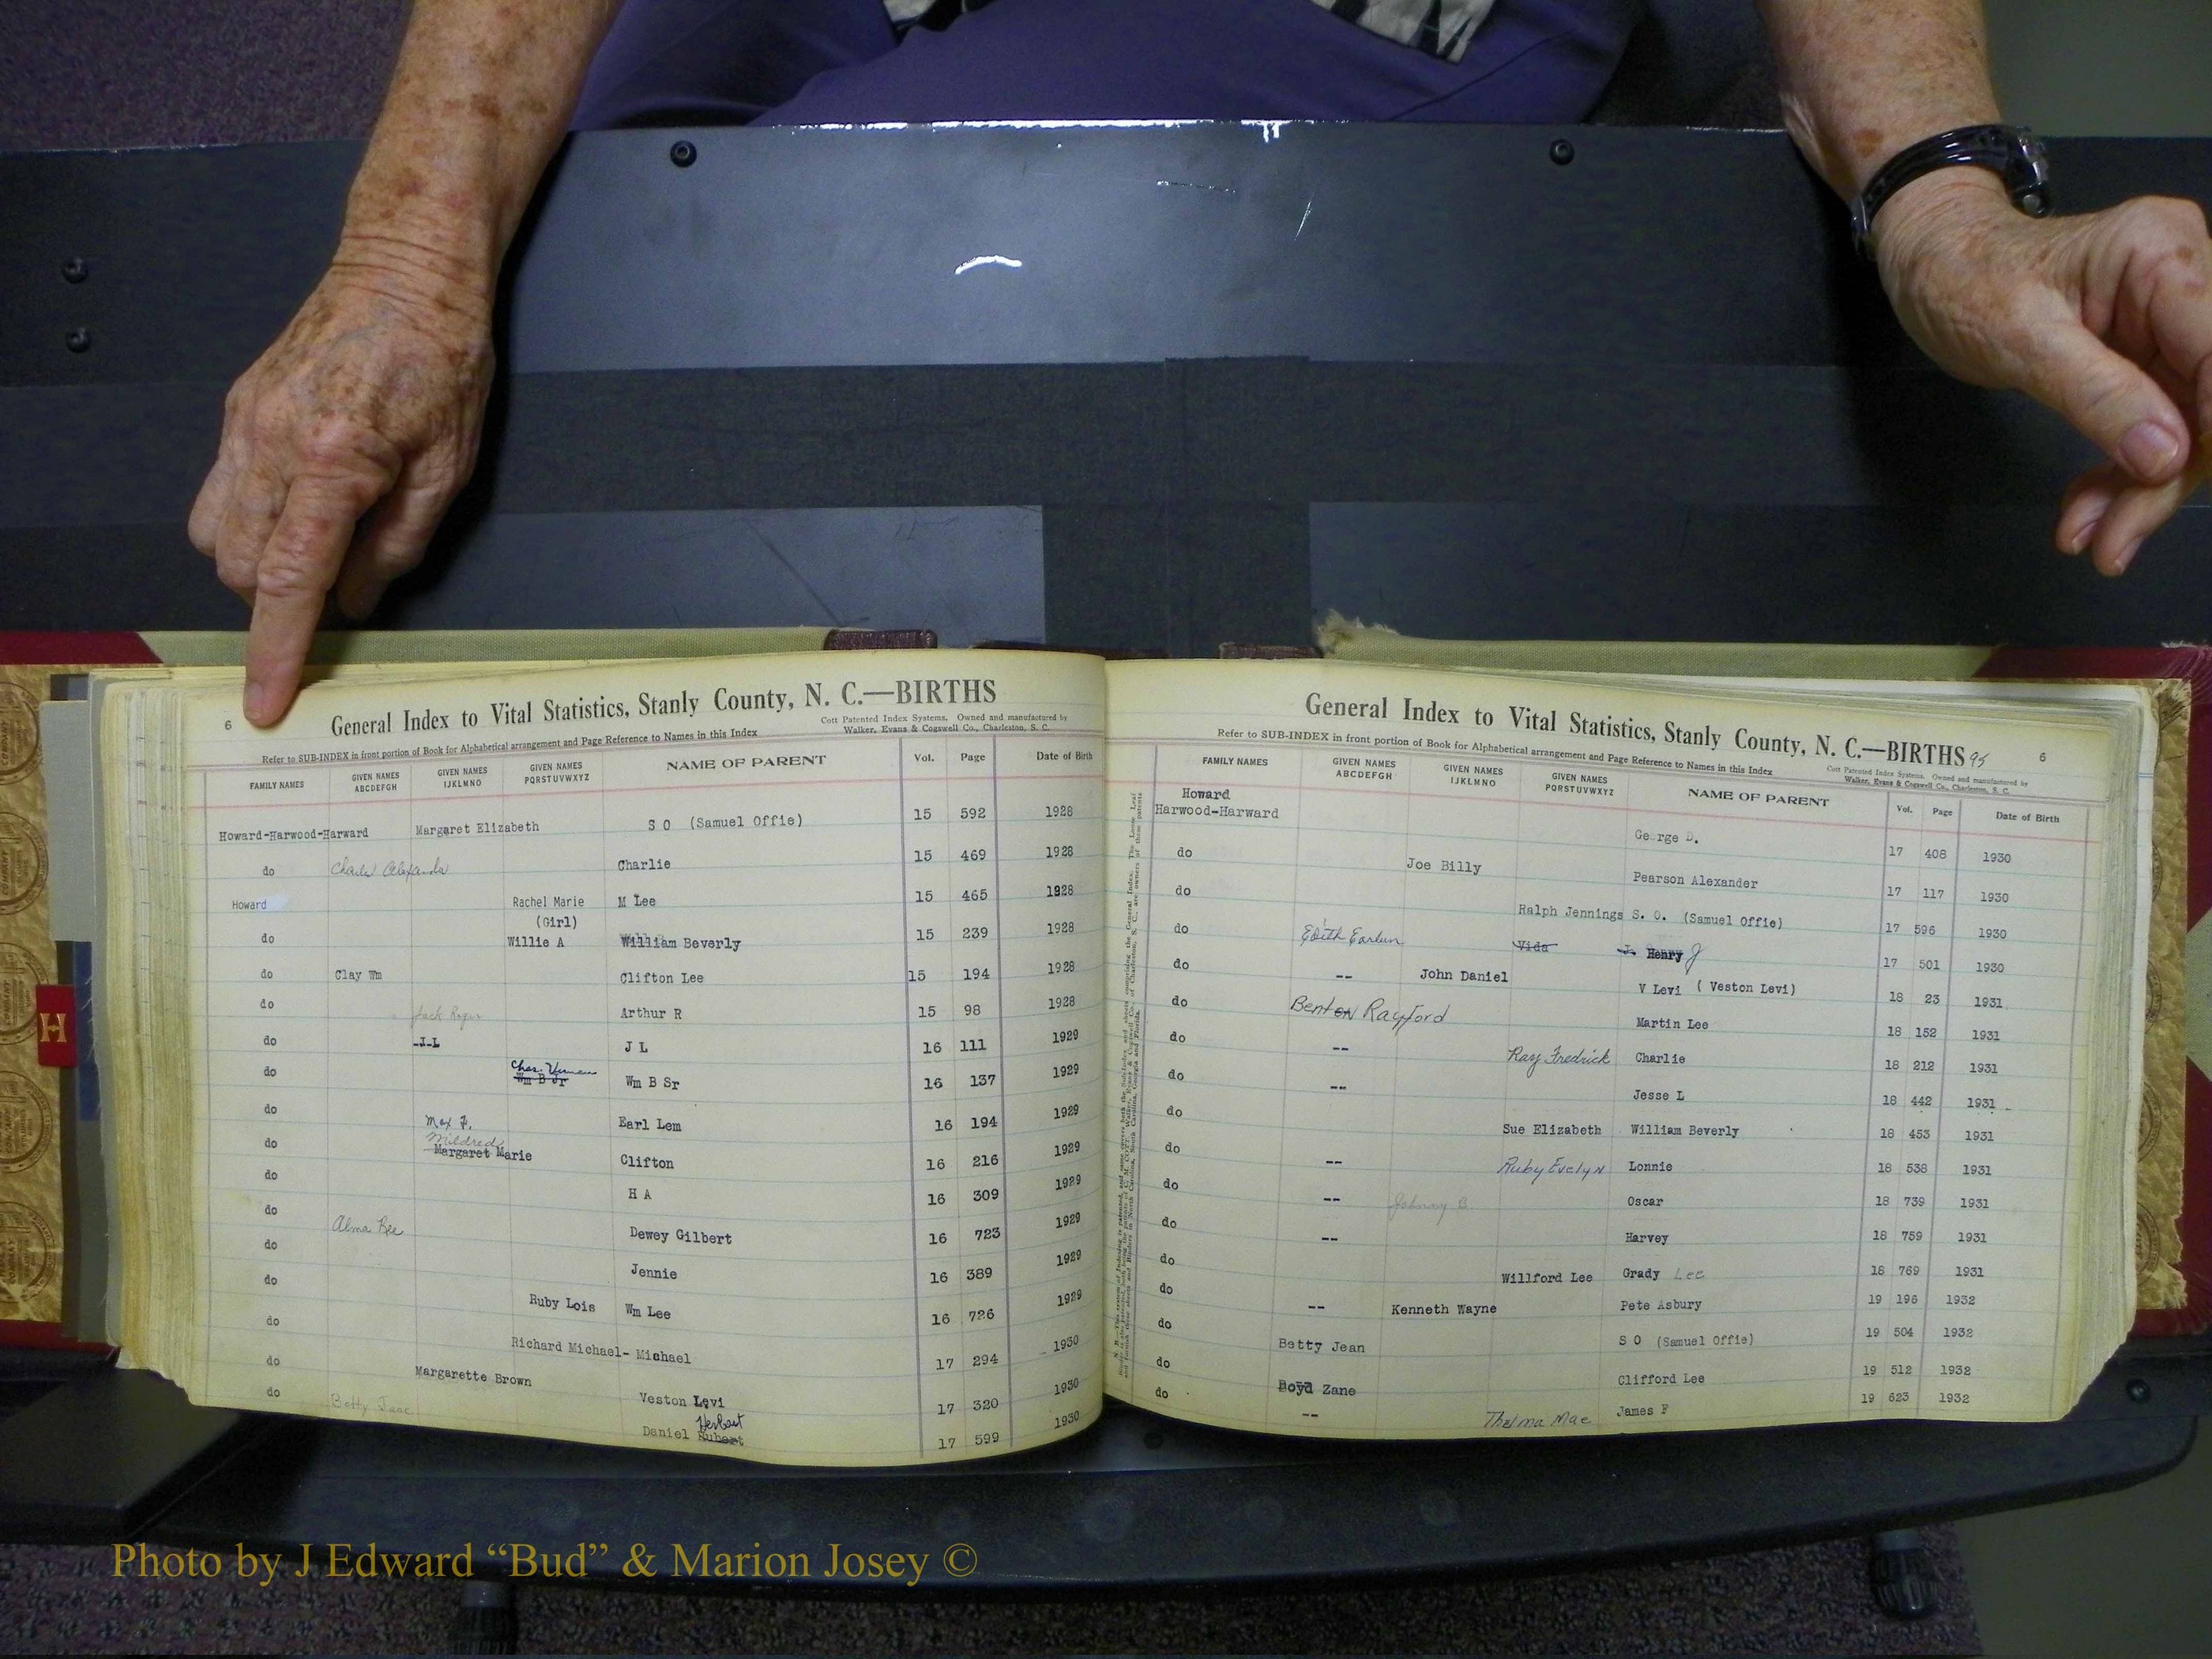 6
General Index to Vital Statistics, Stanly County, N. C.—BIRTHS
Cott Patented Index Systems. Owned and manufactured by
Walker, Evans & Cogswell Co., Charleston, S. C.
Refer to SUB-INDEX in front portion of Book for Alphabetical arrangement and Page Reference to Names in this Index
FAMILY NAMES GIVEN NAMES ABCDEFGH GIVEN NAMES IJKLMNO GIVEN NAMES PQRSTUVWXYZ NAME OF PARENT Vol. Page Date of Birth
Howard-Harwood-Harward Margaret Elizabeth S O (Samuel Offie) 15 592 1928
do Charles Alexander Charlie 15 469 1928
Howard Rachel Marie M Lee 15 465 1928
(Girl)
do Willie A William Beverly 15 239 1928
do Clay Wm Clifton Lee 15 194 1928
do Jack Roger Arthur R 15 98 1928
do J L J L 16 111 1929
Chas.
do Wm B Jr Wm B Sr 16 137 1929
do Max F. Earl Lem 16 194 1929
Mildred
do Margaret Marie Clifton 16 216 1929
do H A 16 309 1929
do Alma Bee Dewey Gilbert 16 723 1929
do Jennie 16 389 1929
do Ruby Lois Wm Lee 16 726 1929
do Richard Michael- Michael 17 294 1930
do Margarette Brown Veston Levi 17 320 1930
Herbert
do Betty Jane Daniel Hubert 17 599 1930
H
General Index to Vital Statistics, Stanly County, N. C.—BIRTHS 95
6
Refer to SUB-INDEX in front portion of Book for Alphabetical arrangement and Page Reference to Names in this Index
Cott Patented Index Systems. Owned and manufactured by
Walker, Evans & Cogswell Co., Charleston, S. C.
FAMILY NAMES GIVEN NAMES ABCDEFGH GIVEN NAMES IJKLMNO GIVEN NAMES PQRSTUVWXYZ NAME OF PARENT Vol. Page Date of Birth
Howard
Harwood-Harward George D. 17 408 1930
do Joe Billy Pearson Alexander 17 117 1930
do Ralph Jennings S. O. (Samuel Offie) 17 596 1930
do Edith Earlun Vida J. Henry J 17 501 1930
do -- John Daniel V Levi (Veston Levi) 18 23 1931
do Benton Rayford Martin Lee 18 152 1931
do -- Ray Fredrick Charlie 18 212 1931
do -- Jesse L 18 442 1931
do Sue Elizabeth William Beverly 18 453 1931
do -- Ruby Evelyn Lonnie 18 538 1931
do -- Johnny B. Oscar 18 739 1931
do -- Harvey 18 759 1931
do Willford Lee Grady Lee 18 769 1931
do -- Kenneth Wayne Pete Asbury 19 196 1932
do Betty Jean S O (Samuel Offie) 19 504 1932
do Boyd Zane Clifford Lee 19 512 1932
do -- Thelma Mae James F 19 623 1932
Photo by J Edward “Bud” & Marion Josey ©